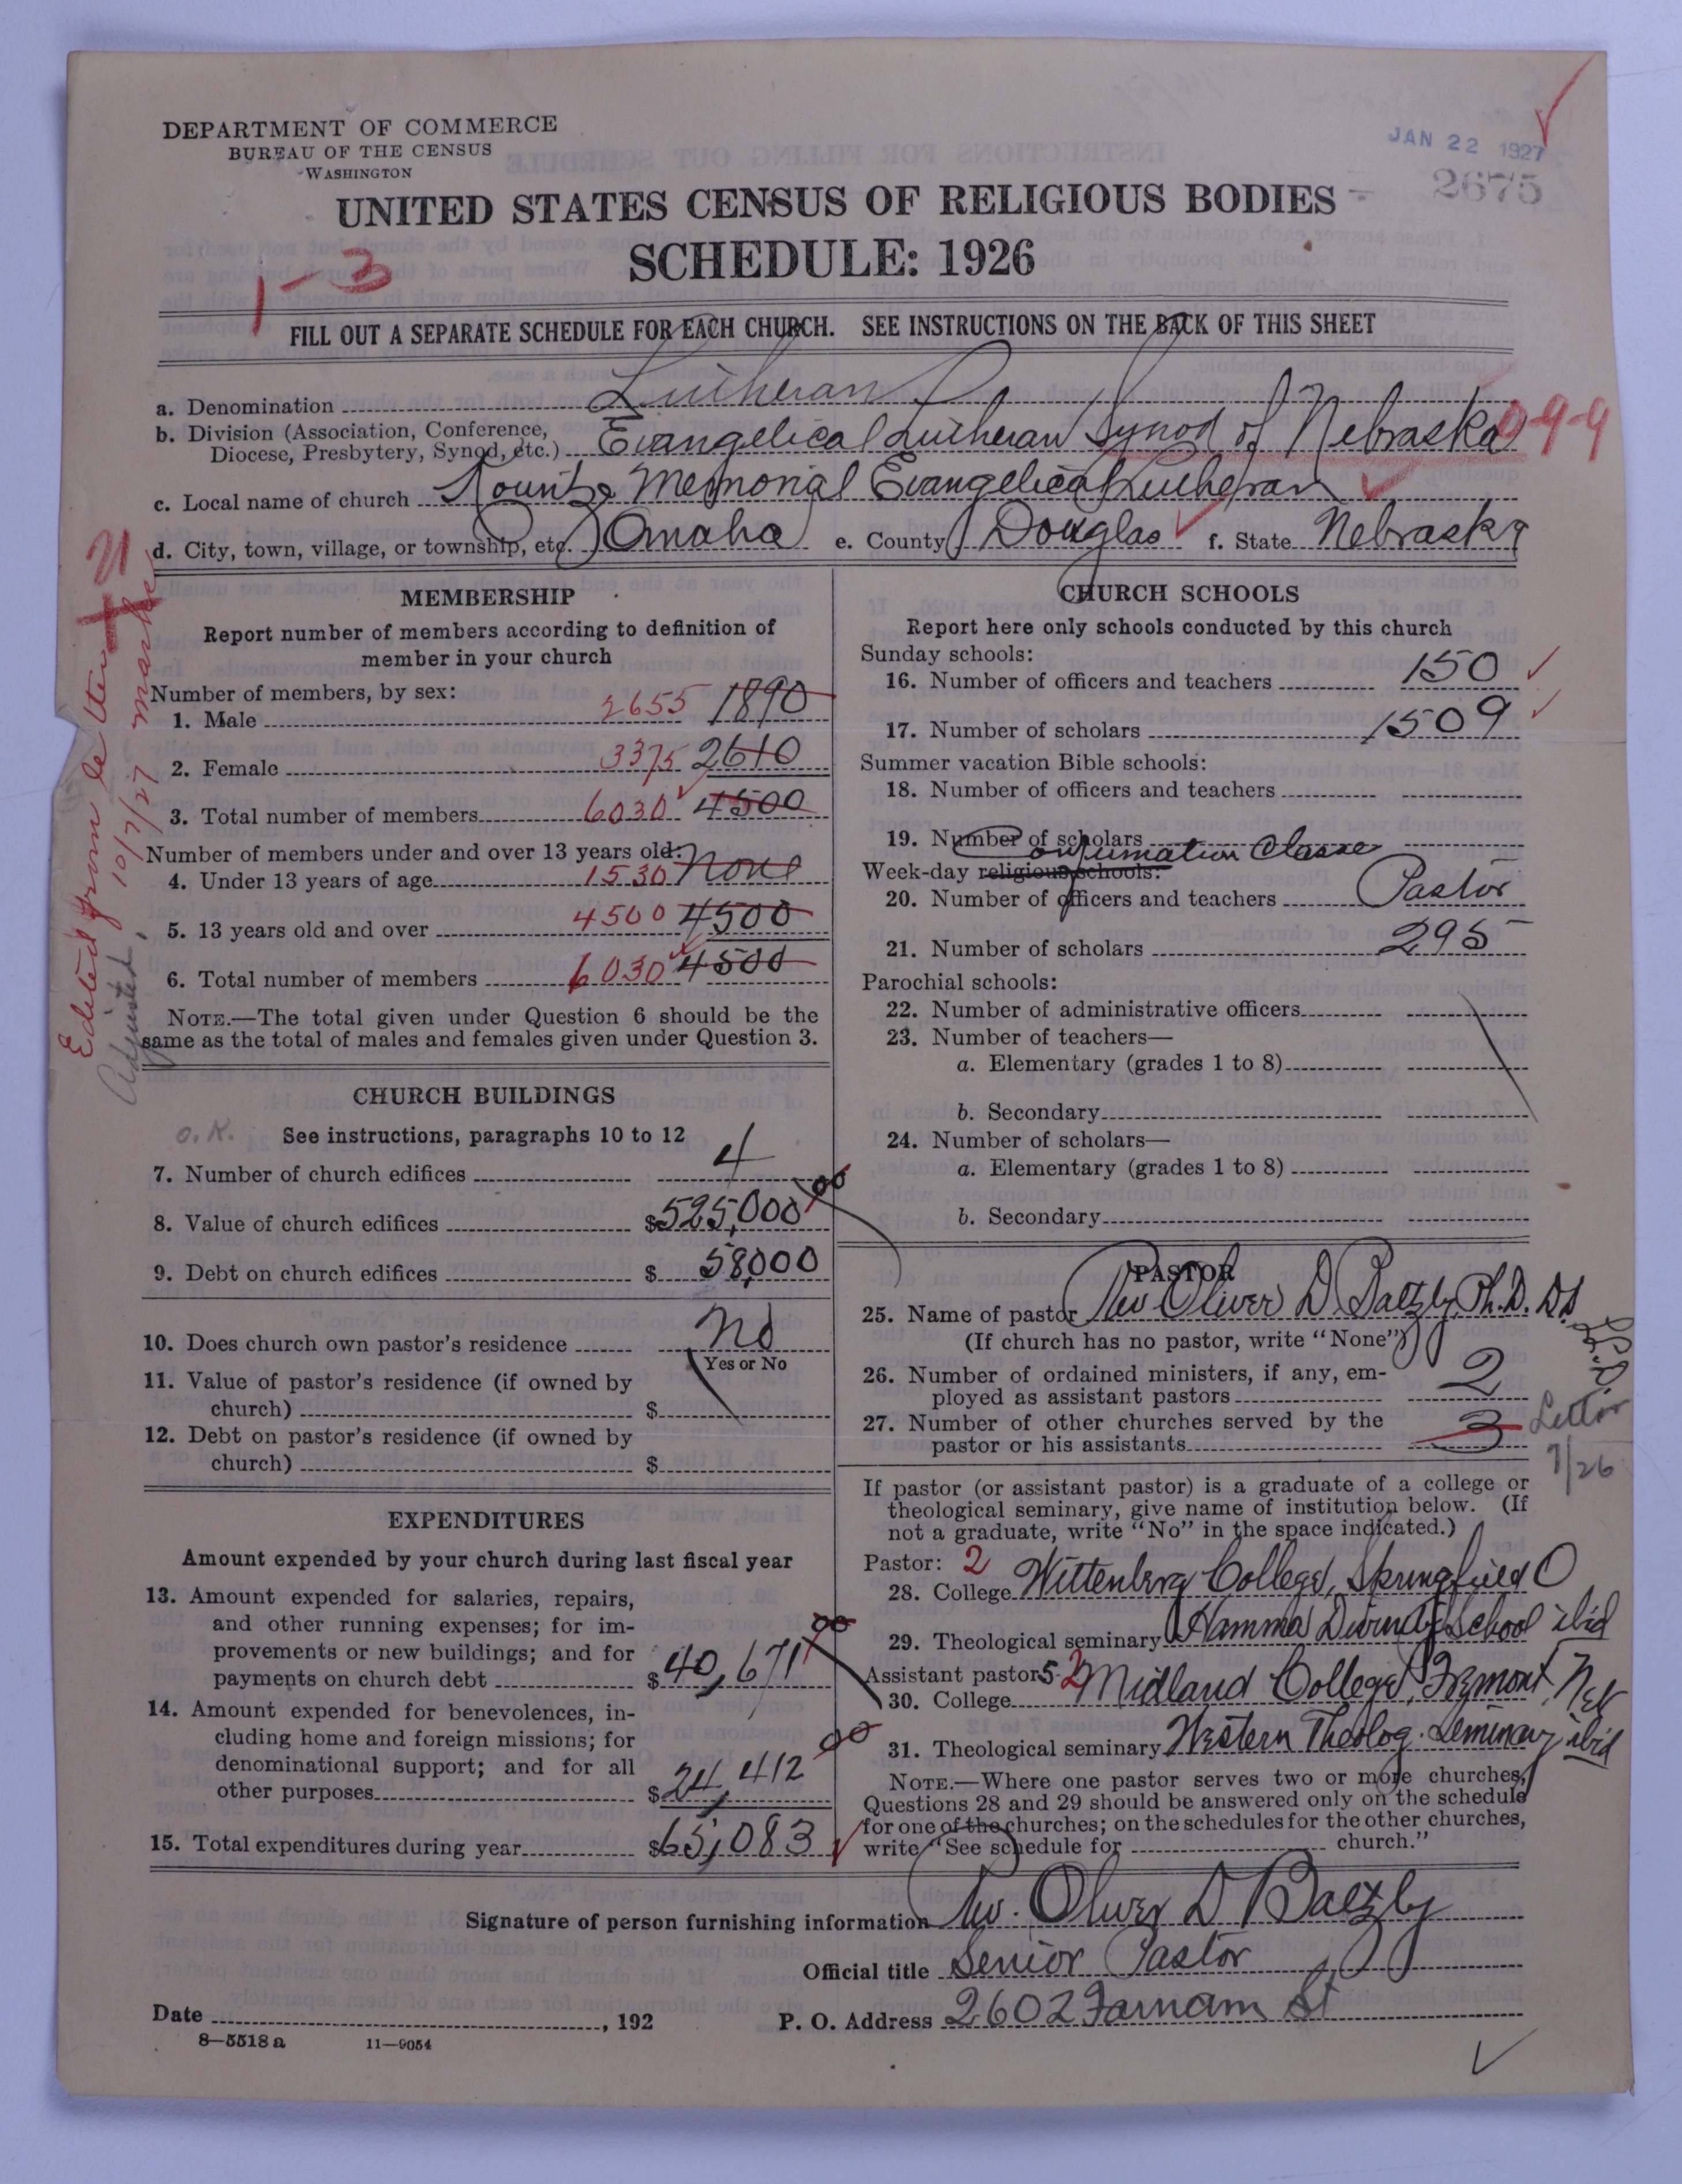 DEPARTMENT OF COMMERCE
BUREAU OF THE CENSUS
WASHINGTON
JAN 22 1927
2675
UNITED STATES CENSUS OF RELIGIOUS BODIES
SCHEDULE: 1926
1-3
FILL OUT A SEPARATE SCHEDULE FOR EACH CHURCH. SEE INSTRUCTIONS ON THE BACK OF THIS SHEET
a. Denomination Lutheran
b. Division (Association, Conference, Diocese, Presbytery, Synod, etc.) Evangelical Lutheran Synod of Nebraska 0-9-9
c. Local name of church Kountze Memorial Evangelical Lutheran
d. City, town, village, or township, etc. Omaha e. County Douglas f. State Nebraska
Edited from letter
10/7/27
Adjusted
MEMBERSHIP
Report number of members according to definition of
member in your church
Number of members, by sex:
1. Male 2655 1890
2. Female 3375 2610
3. Total number of members 6030 4500
Number of members under and over 13 years old:
4. Under 13 years of age 1530 None
5. 13 years old and over 4500 4500
6. Total number of members 6030 4500
NOTE.—The total given under Question 6 should be the
same as the total of males and females given under Question 3.
CHURCH BUILDINGS
O.K. See instructions, paragraphs 10 to 12
7. Number of church edifices 4
8. Value of church edifices $525,000 00
9. Debt on church edifices $58,000
10. Does church own pastor's residence No
Yes or No
11. Value of pastor's residence (if owned by
church) $
12. Debt on pastor's residence (if owned by
church) $
EXPENDITURES
Amount expended by your church during last fiscal year
13. Amount expended for salaries, repairs,
and other running expenses; for im-
provements or new buildings; and for
payments on church debt $40,671 00
14. Amount expended for benevolences, in-
cluding home and foreign missions; for
denominational support; and for all
other purposes $24,412 00
15. Total expenditures during year $65,083
CHURCH SCHOOLS
Report here only schools conducted by this church
Sunday schools:
16. Number of officers and teachers 150
17. Number of scholars 1509
Summer vacation Bible schools:
18. Number of officers and teachers
19. Number of scholars
Confirmation Classe
Week-day religious schools:
20. Number of officers and teachers Pastor
21. Number of scholars 295
Parochial schools:
22. Number of administrative officers
23. Number of teachers—
a. Elementary (grades 1 to 8)
b. Secondary
24. Number of scholars—
a. Elementary (grades 1 to 8)
b. Secondary
PASTOR
25. Name of pastor Rev Oliver D. Baltzly, Ph.D. DD LL.D.
(If church has no pastor, write "None")
26. Number of ordained ministers, if any, em-
ployed as assistant pastors 2
27. Number of other churches served by the
pastor or his assistants 3 Letter
9/26
If pastor (or assistant pastor) is a graduate of a college or
theological seminary, give name of institution below. (If
not a graduate, write "No" in the space indicated.)
Pastor: 2
28. College Wittenberg College, Springfield O
29. Theological seminary Hamma Divinity School ibid
Assistant pastors 2
30. College Midland College, Fremont, Neb
31. Theological seminary Western Theolog. Seminary ibid
NOTE.—Where one pastor serves two or more churches,
Questions 28 and 29 should be answered only on the schedule
for one of the churches; on the schedules for the other churches,
write "See schedule for church."
Signature of person furnishing information Rev. Oliver D Baltzly
Official title Senior Pastor
Date , 192
P. O. Address 2602 Farnam St
8—5518 a 11—9054